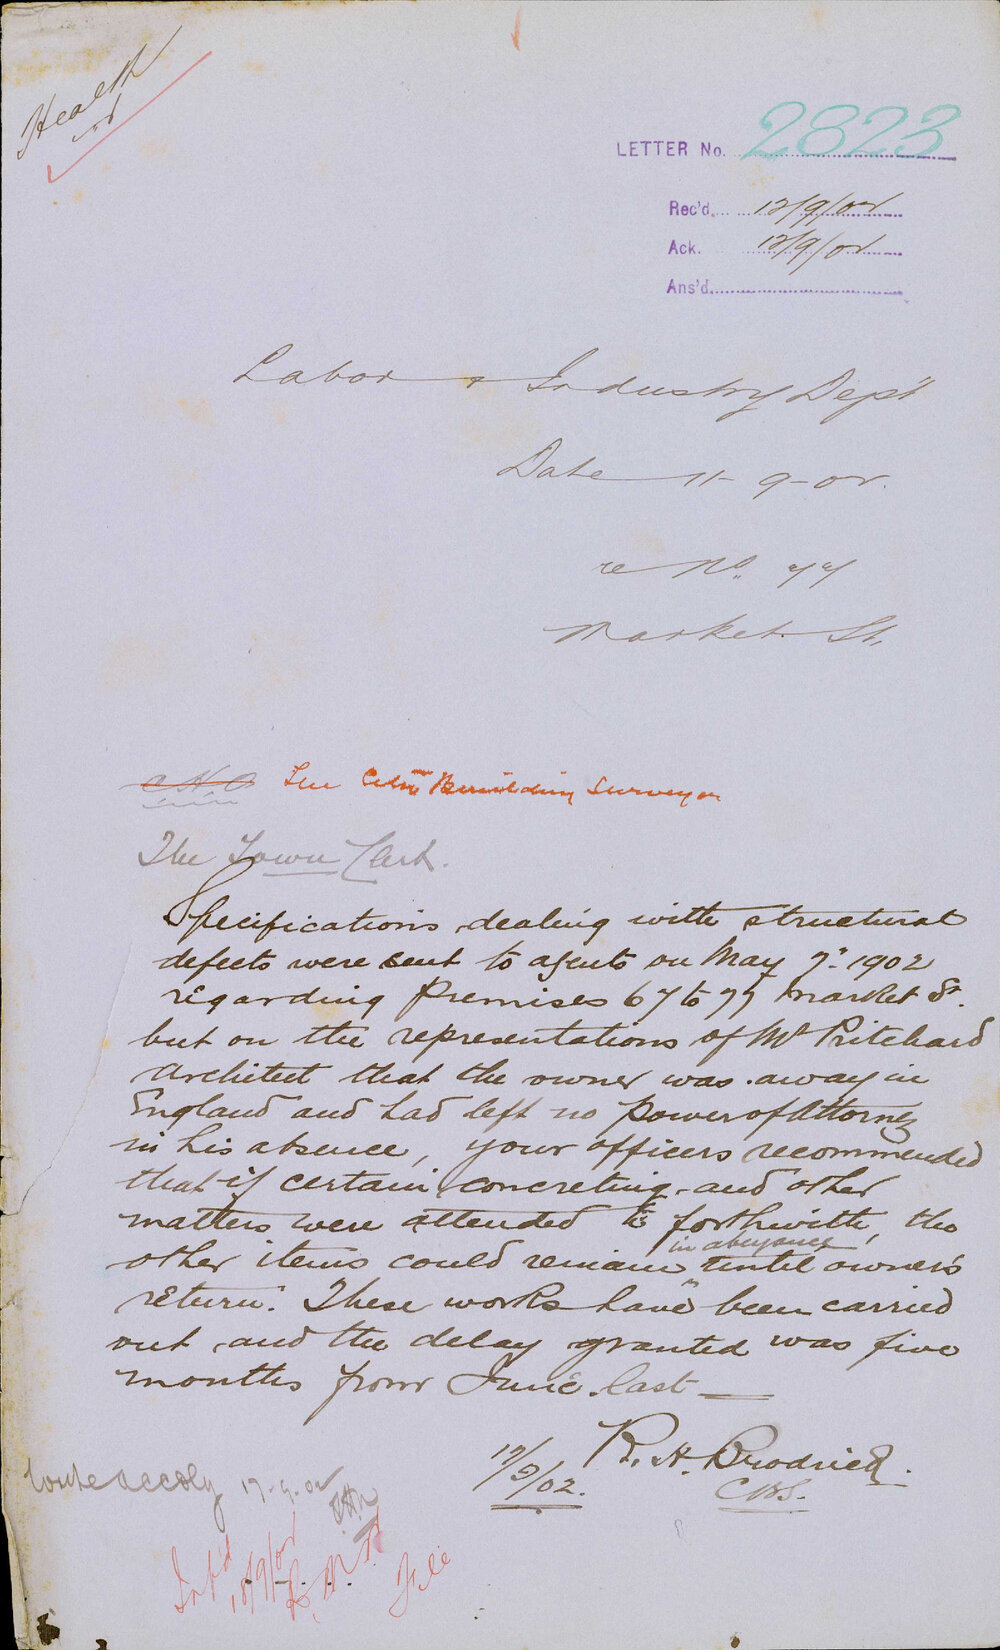 Health
LETTER No. 2823
Rec'd. 12/9/02
Ack. 12/9/02
Ans'd.
Labor & Industry Dep't
Date 11-9-02.
re No. 77
Market St.
C H O The City Building Surveyor
The Town Clerk.
Specifications dealing with structural
defects were sent to agents on May 7" 1902
regarding premises 67 to 77 Market St.
but on the representations of Mr Pritchard
Architect that the owner was away in
England and had left no Power of Attorney
in his absence, your officers recommended
that if certain concreting and other
matters were attended to forthwith, the
in abeyance
other items could remain until owner's
return. These works have been carried
out and the delay granted was five
months from June last
R. H. Brodrick.
12/9/02.
CBS.
Write accdly 17-9-02
Inf'd
18/9/02
File